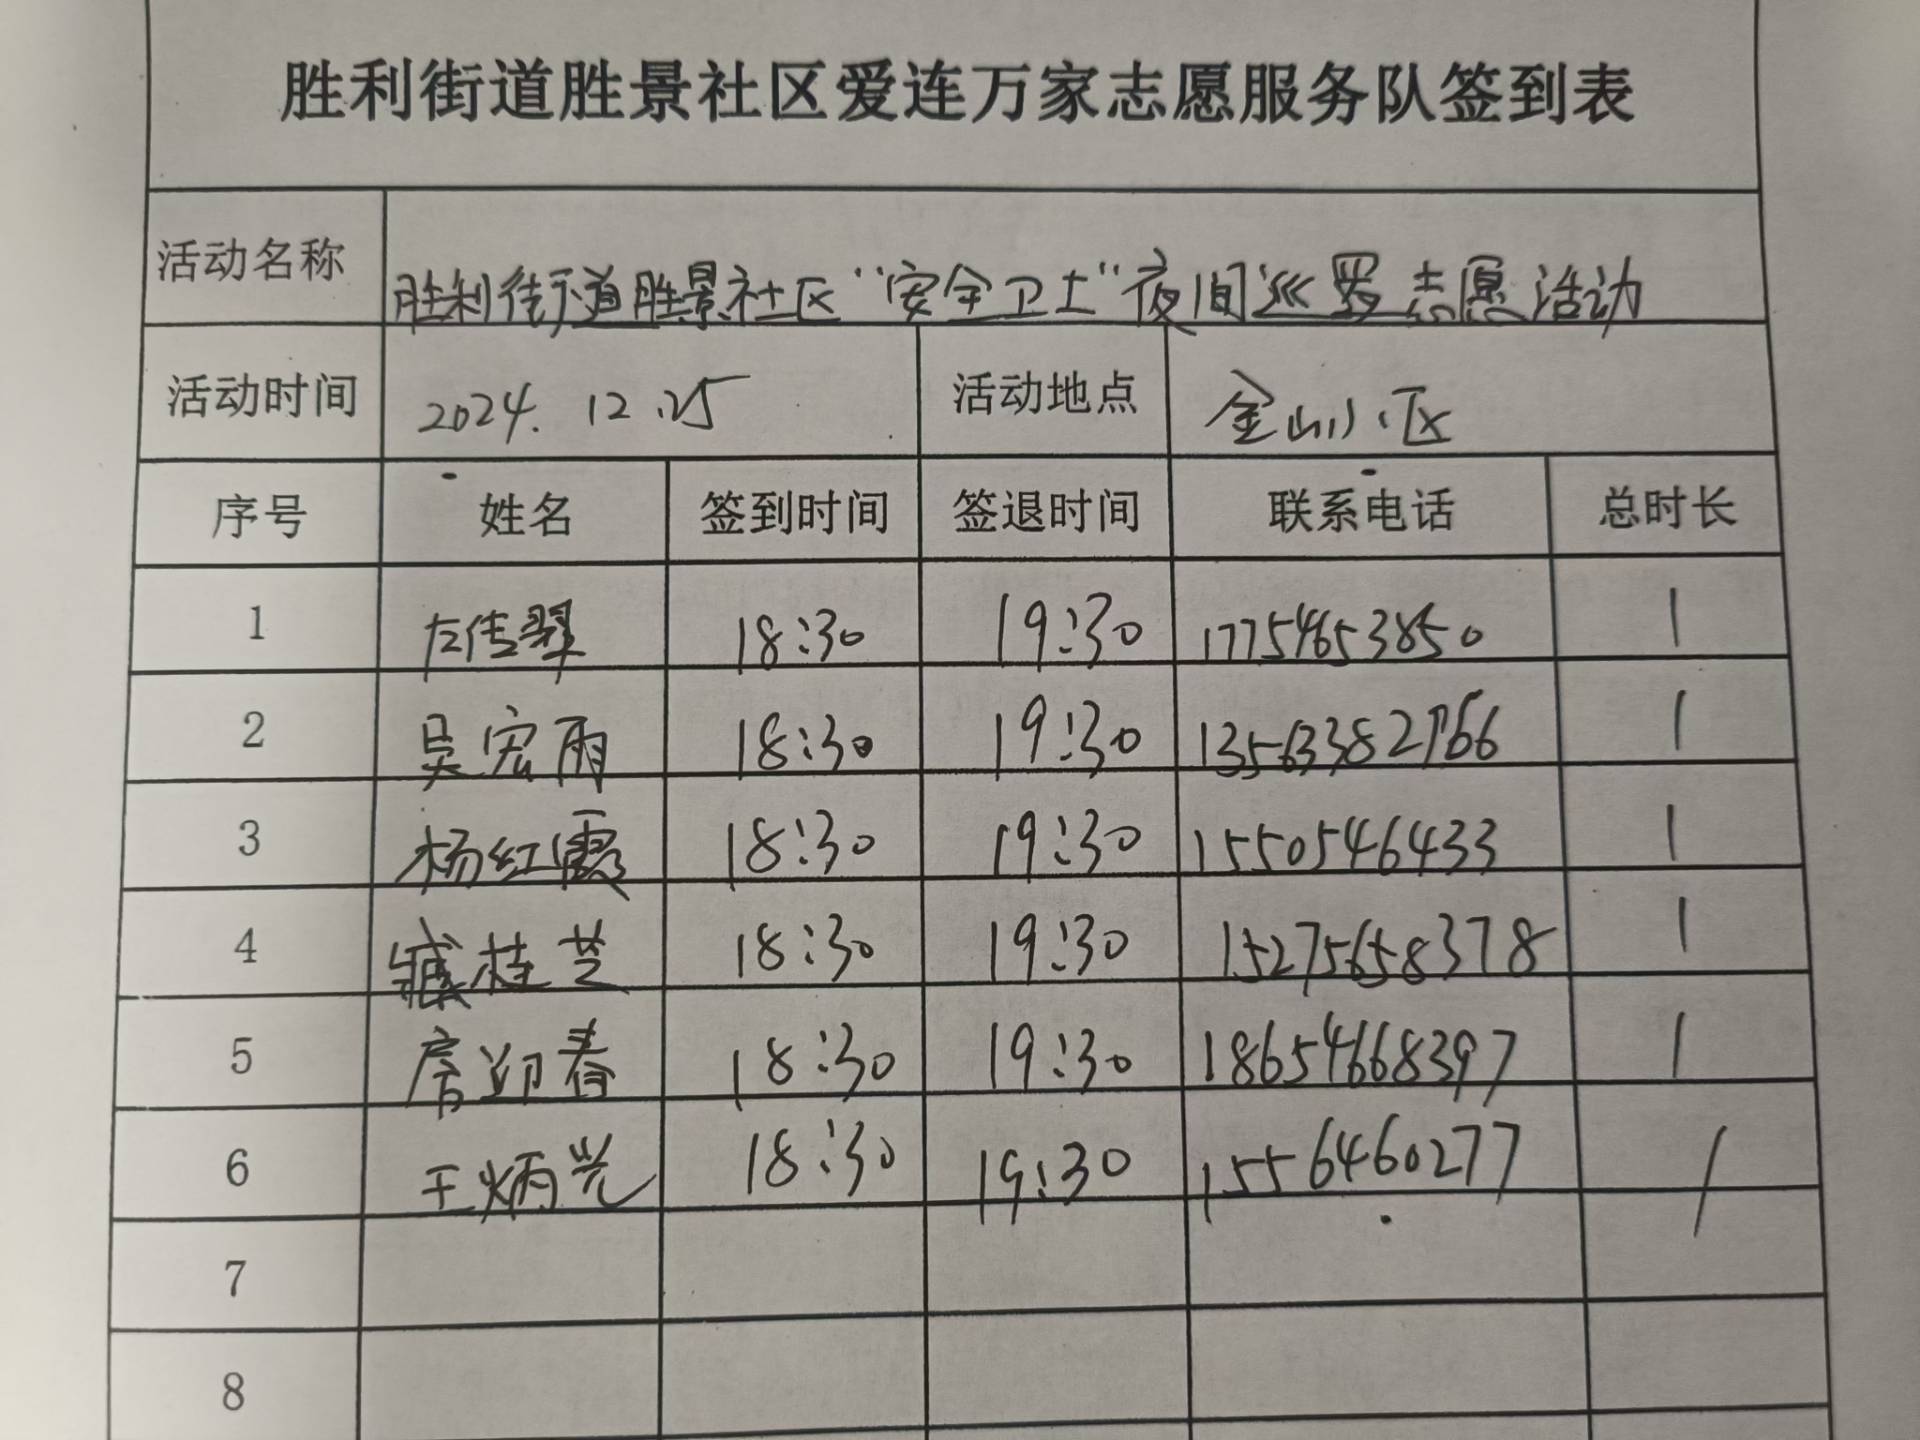 胜利街道胜景社区爱连万家志愿服务队签到表
活动名称 胜利街道胜景社区“安全卫士”夜间巡罗志愿活动
活动时间 2024.12.25 活动地点 金山小区
序号 姓名 签到时间 签退时间 联系电话 总时长
1 左传翠 18:30 19:30 17754653850 1
2 吴宏雨 18:30 19:30 13563382766 1
3 杨红霞 18:30 19:30 15505546433 1
4 臧桂芝 18:30 19:30 15275658378 1
5 房迎春 18:30 19:30 18654668397 1
6 王炳光 18:30 19:30 1556460277 1
7
8